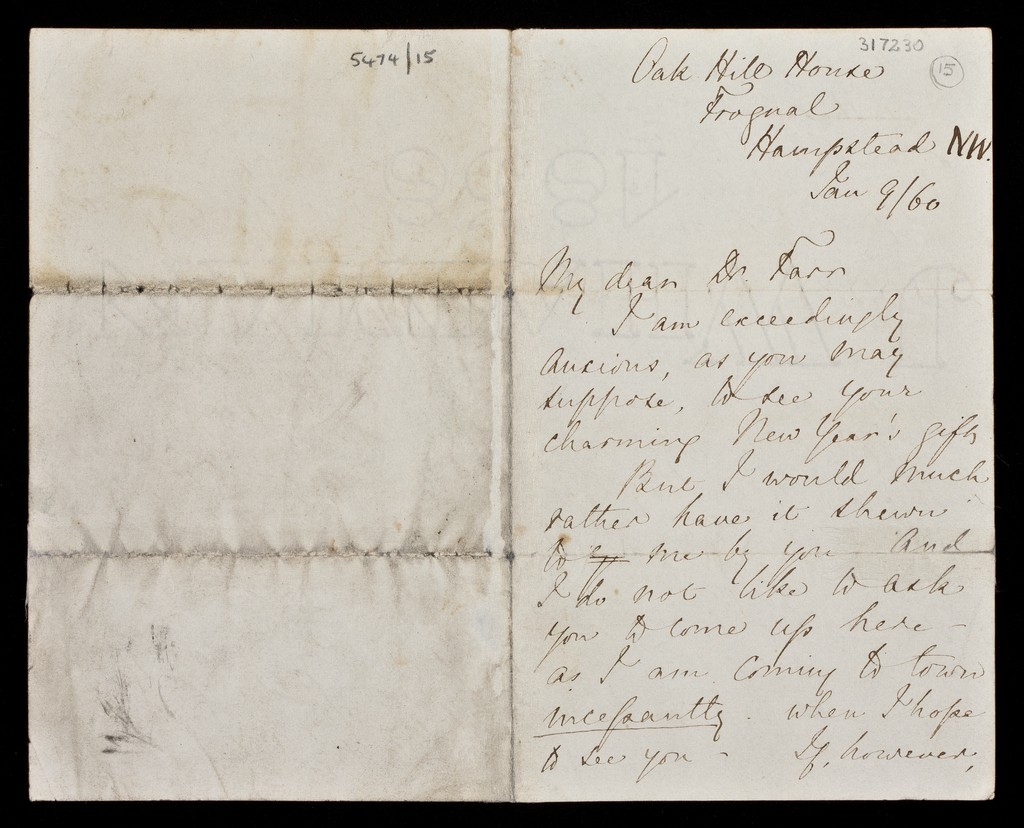 5474/15
317230
15
Oak Hill House
Frognal
Hampstead NW.
Jan 9/60
My dear Dr. Farr
I am exceedingly
anxious, as you may
suppose, to see your
charming New Year's gift
But I would much
rather have it shewn
to me by you And
I do not like to ask
you to come up here -
as I am coming to town
incessantly. when I hope
to see you - If, however,